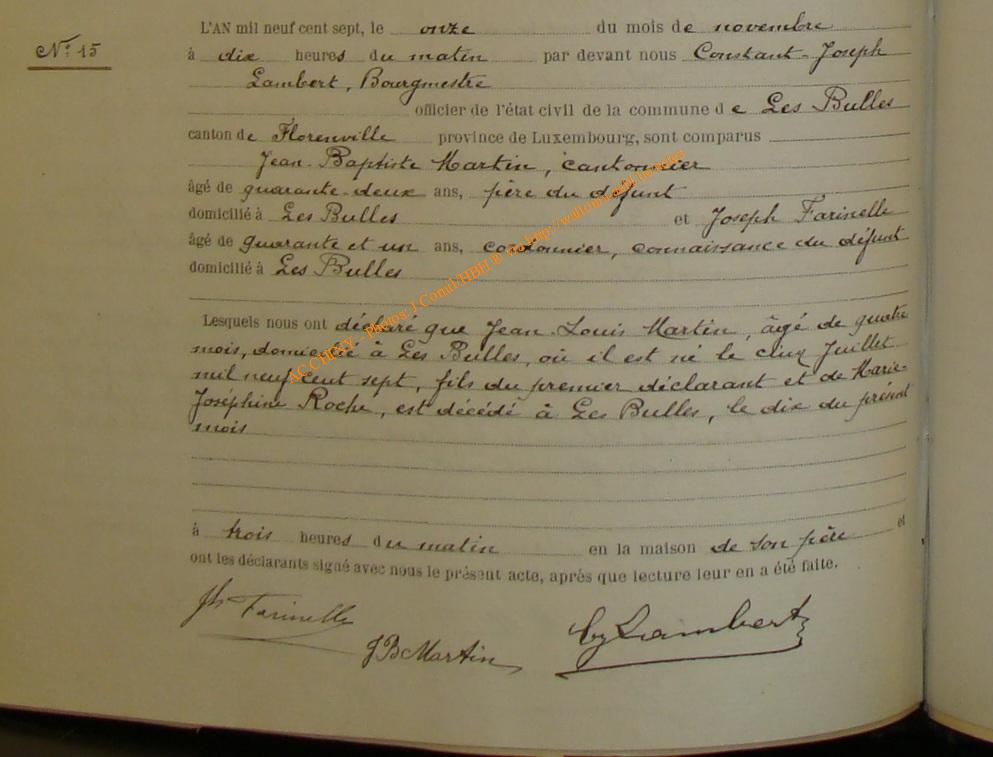 N° 15
L'AN mil neuf cent sept, le onze du mois de novembre
à dix heures du matin par devant nous Constant-Joseph
Lambert, Bourgmestre
officier de l'état civil de la commune de Les Bulles
canton de Florenville province de Luxembourg, sont comparus
Jean-Baptiste Martin, cantonnier
âgé de quarante-deux ans, père du défunt
domicilié à Les Bulles et Joseph Farinelle
âgé de quarante et un ans, cordonnier, connaissance du défunt
domicilié à Les Bulles
Lesquels nous ont déclaré que Jean-Louis Martin, âgé de quatre
mois, domicilié à Les Bulles, où il est né le cinq Juillet
mil neuf cent sept, fils du premier déclarant et de Marie-
Joséphine Roche, est décédé à Les Bulles, le dix du présent
mois
à trois heures du matin en la maison de son père et
ont les déclarants signé avec nous le présent acte, après que lecture leur en a été faite.
Jh Farinelle
JB Martin
Lambert
Photos J Conil HBH ®